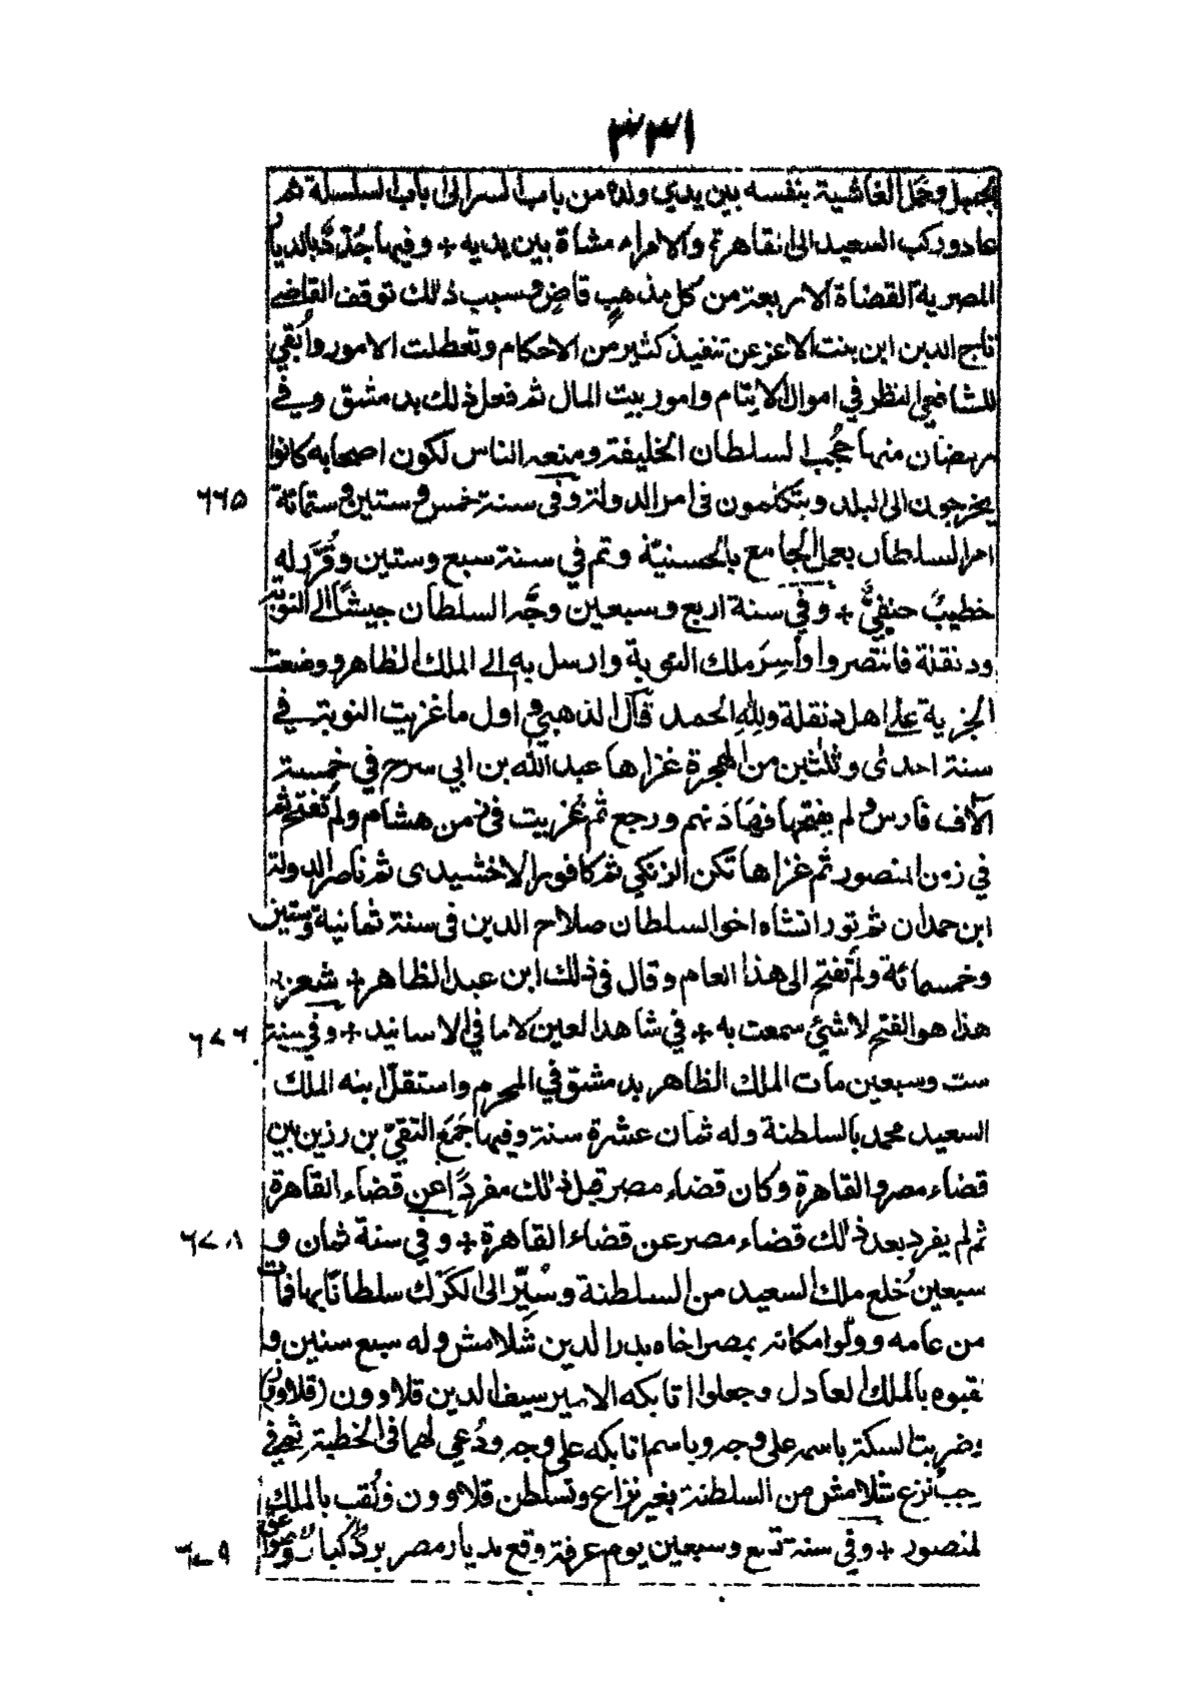 ٣٣١
الجميل وحمل الغاشية بنفسه بين يدي ولده من باب السر الى باب السلسلة ثم
عاد وركب السعيد الى القاهرة والامراء مشاة بين يديه + وفيها جُدّد بالديار
المصرية القضاة الاربعة من كل مذهب قاضٍ وسبب ذلك توقف القاضي
تاج الدين ابن بنت الاعز عن تنفيذ كثير من الاحكام وتعطلت الامور وأبقي
للشافعي النظر في اموال الايتام وامور بيت المال ثم فعل ذلك بدمشق وفي
رمضان منها حجب السلطان الخليفة ومنعه الناس لكون اصحابه كانوا
يخرجون الى البلد ويتكلمون في امر الدولة وفي سنة خمس وستين وستمائة
٦٦٥
امر السلطان بعمل الجامع بالحسنية وتم في سنة سبع وستين وقُرّر له
خطيبٌ حنفيٌّ + وفي سنة اربع وسبعين وجّه السلطان جيشًا الى النوبة
ودنقلة فانتصروا وأسِرَ ملك النوبة وارسل به الى الملك الظاهر ووضعت
الجزية على اهل دنقلة ولله الحمد قال الذهبي واول ما غزيت النوبة في
سنة احدى وثلثين من الهجرة غزاها عبد الله بن ابي سرح في خمسة
آلاف فارس ولم يفتحها فهادنهم ورجع ثم غزيت في زمن هشام ولم تفتح ثم
في زمن المنصور ثم غزاها تكن الزنكي ثم كافور الاخشيدى ثم ناصر الدولة
ابن حمدان ثم تورانشاه اخو السلطان صلاح الدين في سنة ثمانية وستين
وخمسمائة ولم تفتح الى هذا العام وقال في ذلك ابن عبد الظاهر + شعر +
هذا هو الفتح لا شيئ سمعت به + في شاهد العين لا ما في الاسانيد + وفي سنة
٦٧٦
ست وسبعين مات الملك الظاهر بدمشق في المحرم واستقل ابنه الملك
السعيد محمد بالسلطنة وله ثمان عشرة سنة وفيها جَمَعَ التقيّ بن رزين بين
قضاء مصر والقاهرة وكان قضاء مصر قبل ذلك مفردًا عن قضاء القاهرة
ثم لم يفرد بعد ذلك قضاء مصر عن قضاء القاهرة + وفي سنة ثمان و
٦٧٨
سبعين خُلع ملك السعيد من السلطنة وسُيِّر الى الكرك سلطانًا بها فمات
من عامه وولّوا مكانه بمصر اخاه بدر الدين شلامش وله سبع سنين و
لقبوه بالملك العادل وجعلوا اتابكه الامير سيف الدين قلاوون (قلاون)
وضربت السكة باسمه على وجه وباسم اتابكه على وجه ودُعي لهما في الخطبة ثم في
رجب نزع شلامش من السلطنة بغير نزاع وتسلطن قلاوون ولُقب بالملك
المنصور + وفي سنة تسع وسبعين يوم عرفة وقع بديار مصر بردٌ كبارٌ وصواعق
٦٧٩